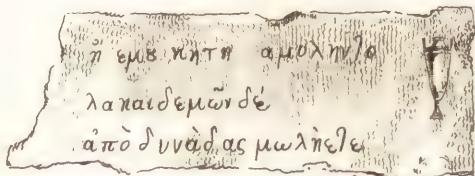 ἡ εμȣ κητη αμȣληντο
λακαιδεμῶν δέ
ἀπὸ δυνὰδας μωλὴετε